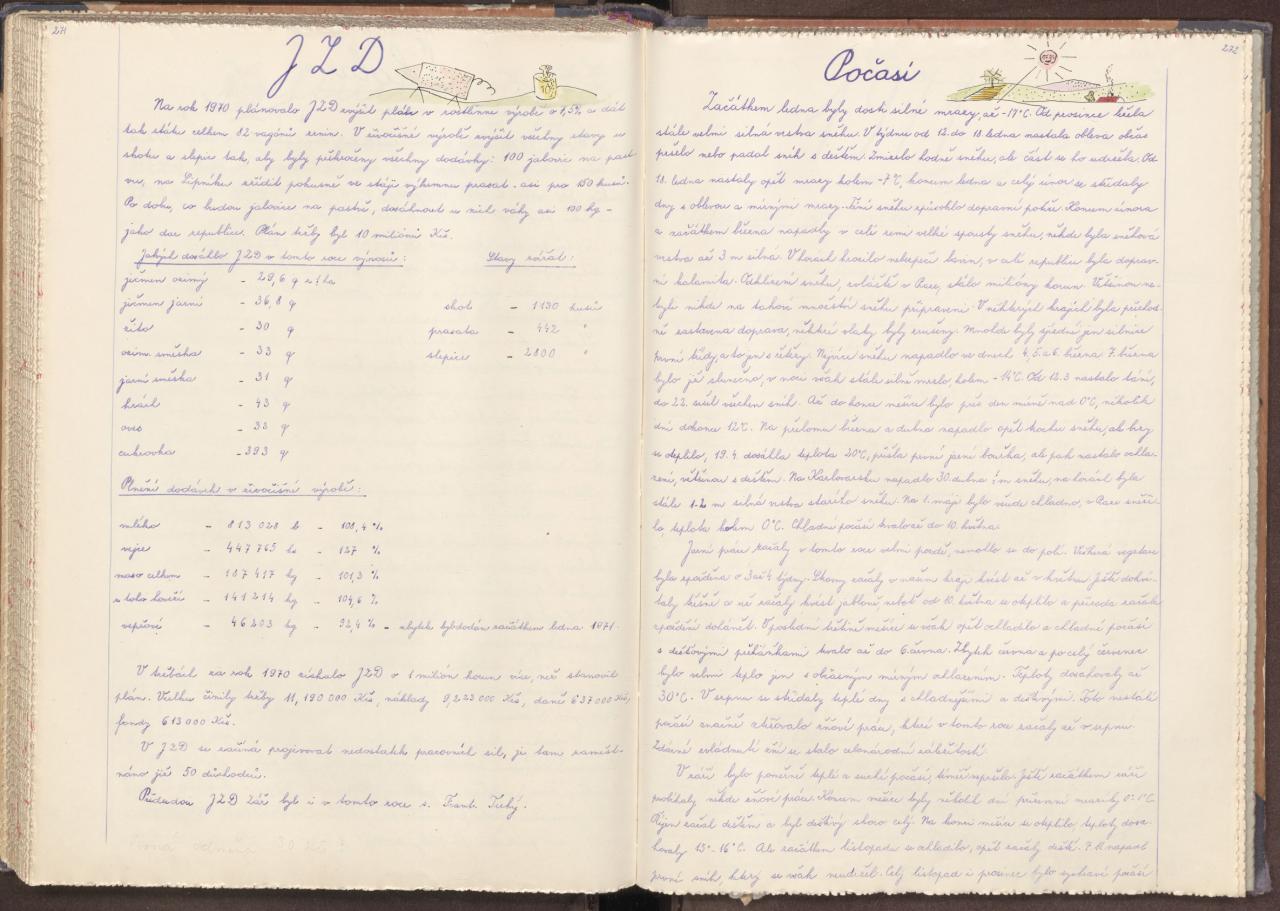 271
JZD
Na rok 1970 plánovalo JZD zvýšit plán v rostlinné výrobě o 1,5% a dát
tak státu celkem 82 vagónů zrnin. V živočišné výrobě zvýšit všechny stavy u
skotu a slepic tak, aby byly překročeny všechny dodávky: 100 jalovic na past
vu, na Lipníku zřídit pokusně ve stáji výkrmnu prasat asi pro 150 kusů.
Po dobu, co budou jalovice na pastvě, dosáhnout u nich váhy asi 100 kg -
jako dar republice. Plán tržby byl 10 miliónů Kčs.
Jakých dosáhlo JZD v tomto roce výnosů: Stavy zvířat:
ječmen ozimý - 29,6 q z 1 ha
ječmen jarní - 36,8 q skot - 1130 kusů
žito - 30 q prasata - 442 "
ozim. směska - 33 q slepice - 2800 "
jarní směska - 31 q
hrách - 43 q
oves - 32 q
cukrovka - 393 q
Plnění dodávek v živočišné výrobě:
mléko - 813 028 l - 108,4 %
vejce - 447 765 ks - 127 %
maso celkem - 187 417 kg - 101,3 %
z toho hovězí - 141 214 kg - 104,6 %
vepřové - 46 203 kg - 92,4 % - zbytek byl dodán začátkem ledna 1971.
V tržbách za rok 1970 získalo JZD o 1 milión korun více, než stanovil
plán. Vcelku činily tržby 11,190 000 Kčs, náklady 9,223 000 Kčs, daně 637 000 Kčs,
fondy 613 000 Kčs.
V JZD se začíná projevovat nedostatek pracovních sil, je tam zaměst-
náno již 50 důchodců.
Předsedou JZD Zář byl i v tomto roce s. Frant. Tichý.
272
Počasí
Začátkem ledna byly dosti silné mrazy, až -17°C. Od prosince ležela
stále velmi silná vrstva sněhu. V týdnu od 12. do 18. ledna nastala obleva občas
pršelo nebo padal sníh s deštěm. Zmizelo hodně sněhu, ale část se ho udržela. Od
18. ledna nastaly opět mrazy kolem -7°C, koncem ledna a celý únor se střídaly
dny s oblevou a mírnými mrazy. Tání sněhu způsobilo dopravní potíže. Koncem února
a začátkem března napadly v celé zemi velké spousty sněhu, někde byla sněhová
vrstva až 3 m silná. V horách hrozilo nebezpečí lavin, v celé republice byla doprav-
ní kalamita. Odklizení sněhu, zvláště v Praze, stálo milióny korun. Většinou ne-
byli nikde na takové množství sněhu připraveni. V některých krajích byla přechod-
ně zastavena doprava, některé vlaky byly zrušeny. Mnohde byly sjízdné jen silnice
první třídy, a to jen s řetězy. Nejvíce sněhu napadlo ve dnech 4. 5. a 6. března 7. března
bylo již slunečno, v noci však stále silně mrzlo, kolem -14°C. Od 12.3 nastalo tání,
do 22. sešel všechen sníh. Až do konce měsíce bylo přes den mírně nad 0°C, několik
dní dokonce 12°C. Na přelomu března a dubna napadlo opět trochu sněhu, ale brzy
se oteplilo, 19. 4. dosáhla teplota 20°C, přišla první jarní bouřka, ale pak nastalo ochla-
zení, většinou s deštěm. Na Karlovarsku napadlo 30. dubna ½ m sněhu, na horách byla
stále 1-2 m silná vrstva starého sněhu. Na 1. máje bylo všude chladno, v Praze sněži-
lo, teplota kolem 0°C. Chladné počasí trvalo až do 10. května.
Jarní práce začaly v tomto roce velmi pozdě, nemohlo se do polí. Veškerá vegetace
byla opožděna o 3 až 4 týdny. Stromy začaly v našem kraji kvést až v květnu. Ještě dokvé-
taly třešně a už začaly kvést jabloně, neboť od 10. května se oteplilo a příroda začala
zpoždění dohánět. V poslední třetině měsíce se však opět ochladilo a chladné počasí
s dešťovými přeháňkami trvalo až do 6. června. Zbytek června a po celý červenec
bylo velmi teplo jen s občasným mírným ochlazením. Teploty dosahovaly až
30°C. V srpnu se střídaly teplé dny s chladnějšími a deštivými. Toto nestálé
počasí značně ztěžovalo žňové práce, které v tomto roce začaly až v srpnu.
Zdárné zvládnutí žní se stalo celonárodní záležitostí.
V září bylo poměrně teplé a suché počasí, téměř nepršelo. Ještě začátkem září
probíhaly někde žňové práce. Koncem měsíce byly několik dní přízemní mrazíky 0°-1°C.
Říjen začal deštěm a byl deštivý skoro celý. Na konci měsíce se oteplilo, teploty dosa-
hovaly 13°-16°C. Ale začátkem listopadu se ochladilo, opět začaly deště. 7. 11. napadl
první sníh, který se však neudržel. Celý listopad i prosinec bylo